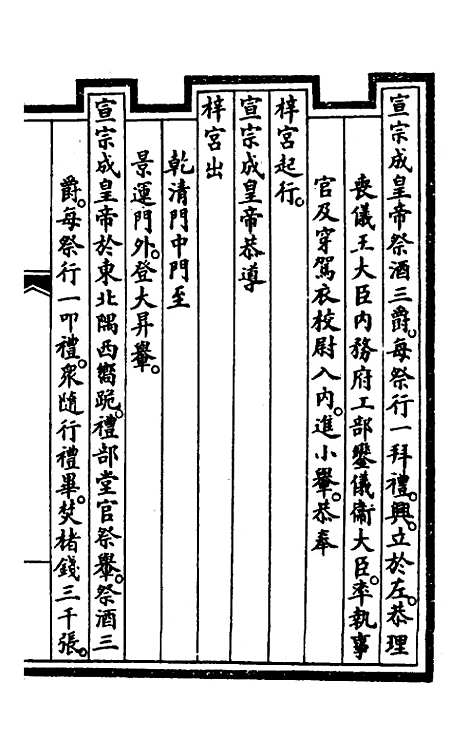 宣宗成皇帝祭酒三爵。每祭行一拜禮。興。立於左。恭理
喪儀王大臣內務府工部鑾儀衛大臣。率執事
官及穿駕衣校尉入內。進小轝。恭奉
梓宮起行。
宣宗成皇帝恭導
梓宮出
乾清門中門至
景運門外。登大昇轝。
宣宗成皇帝於東北隅西嚮跪。禮部堂官祭轝。祭酒三
爵。每祭行一叩禮。衆隨行禮畢。焚楮錢三千張。